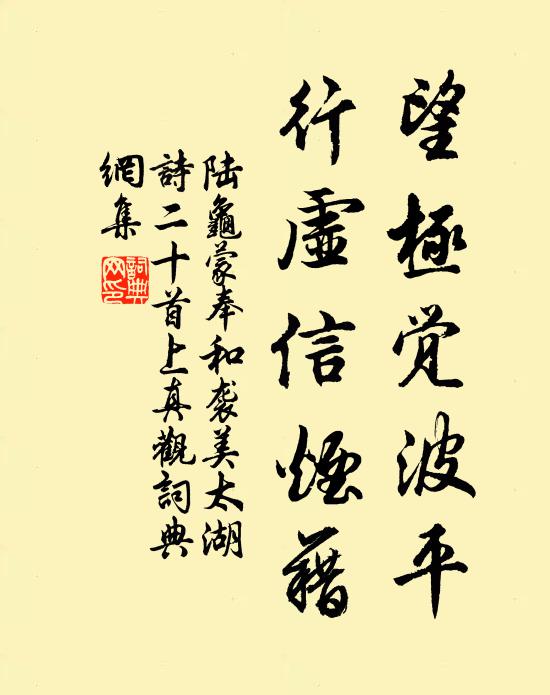 望極覺波平
行虛信煙藉
陆龜蒙奉和袭美太湖
詩二十首上真觀詞典
網集
詞典
网印